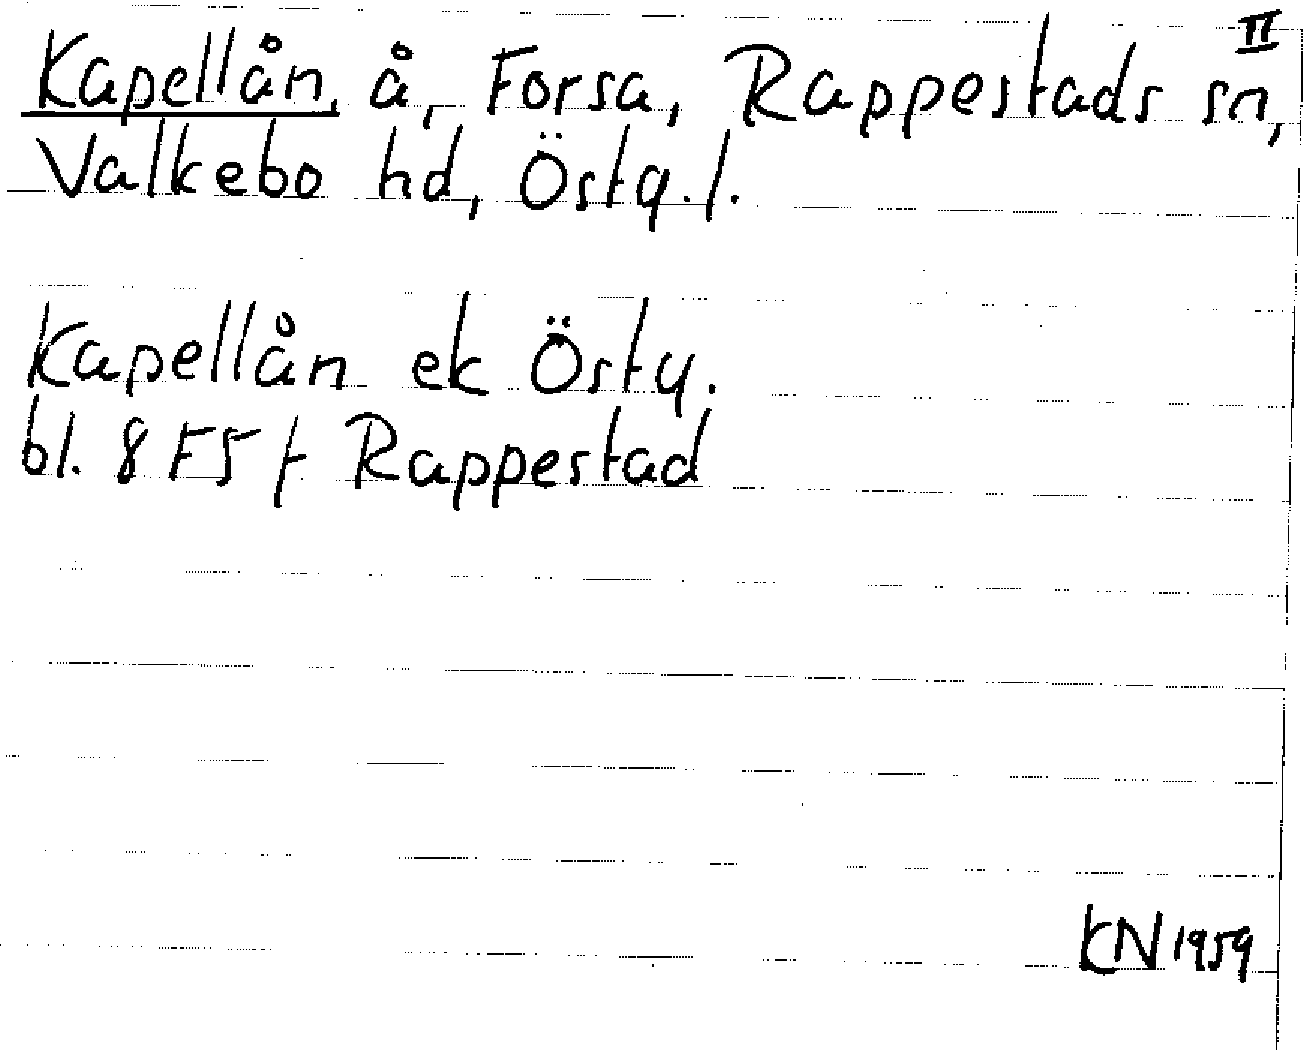 II
Kapellån, å, Forsa, Rappestads sn,
Valkebo hd, Östg.l.
Kapellån ek Östg.
bl. 8 F5 f Rappestad
KN 1959